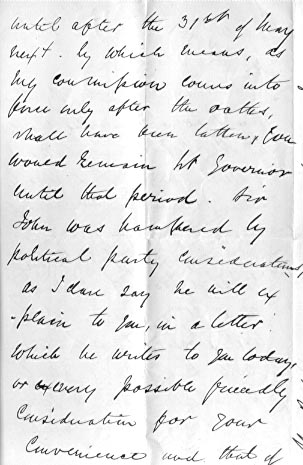 until after the 31st of May
next. by which means, as
my commission comes into
force only after the oaths,
shall have been taken, you
would remain Lt Governor
until that period. Sir
John was hampered by
political party considerations,
as I dare say he will ex
-plain to you, in a letter
which he writes to you today,
or every possible friendly
consideration for your
convenience and that of